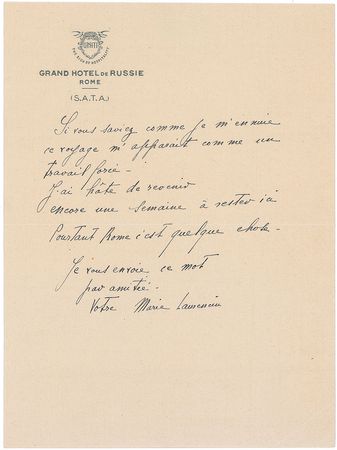 GRAND HOTEL DE RUSSIE
ROME
(S.A.T.A.)
Si vous saviez comme je m'ennuie
ce voyage m'apparait comme un
travail forcé -
J'ai hâte de revenir
encore une semaine à rester ici
Pourtant Rome c'est quelque chose -
Je vous envoie ce mot
par amitié -
Votre Marie Laurencin